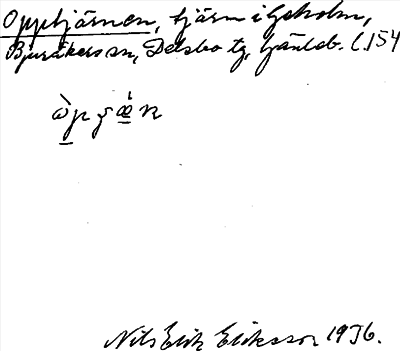 Opptjärnen, tjärn i Geholm,
Bjuråkers sn, Delsbo tg, Gävleb. l. 154
Nils Erik Eriksson 1936.